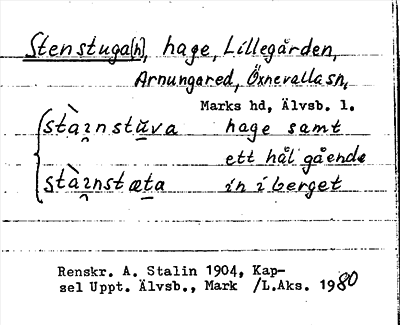 Stenstuga[n], hage, Lillegården,
Arnungared, Öxnevalla sn,
Marks hd, Älvsb. l.
stàɪnstŭva hage samt
ett hål gående
stàɪnstæta in i berget
Renskr. A. Stalin 1904, Kap-
sel Uppt. Älvsb., Mark /L.Aks. 1980